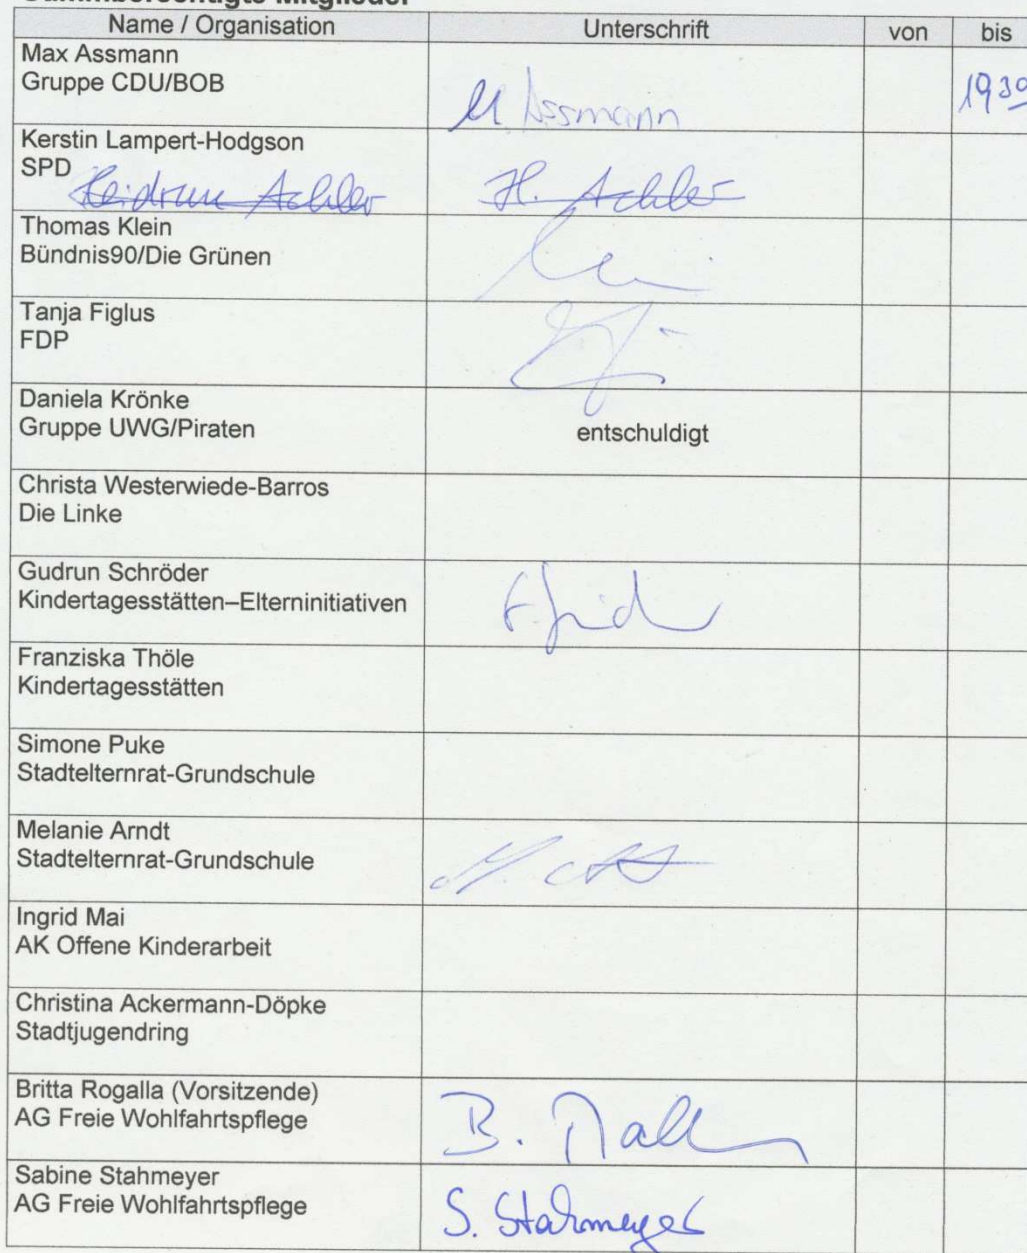 Stimmberechtigte Mitglieder
Name / Organisation Unterschrift von bis
Max Assmann
Gruppe CDU/BOB
M. Assmann 19³⁰
Kerstin Lampert-Hodgson
SPD
Heidrun Achler H. Achler
Thomas Klein
Bündnis90/Die Grünen
Tanja Figlus
FDP
Daniela Krönke
Gruppe UWG/Piraten entschuldigt
Christa Westerwiede-Barros
Die Linke
Gudrun Schröder
Kindertagesstätten–Elterninitiativen
Franziska Thöle
Kindertagesstätten
Simone Puke
Stadtelternrat-Grundschule
Melanie Arndt
Stadtelternrat-Grundschule
Ingrid Mai
AK Offene Kinderarbeit
Christina Ackermann-Döpke
Stadtjugendring
Britta Rogalla (Vorsitzende)
AG Freie Wohlfahrtspflege
B.
Sabine Stahmeyer
AG Freie Wohlfahrtspflege
S. Stahmeyer